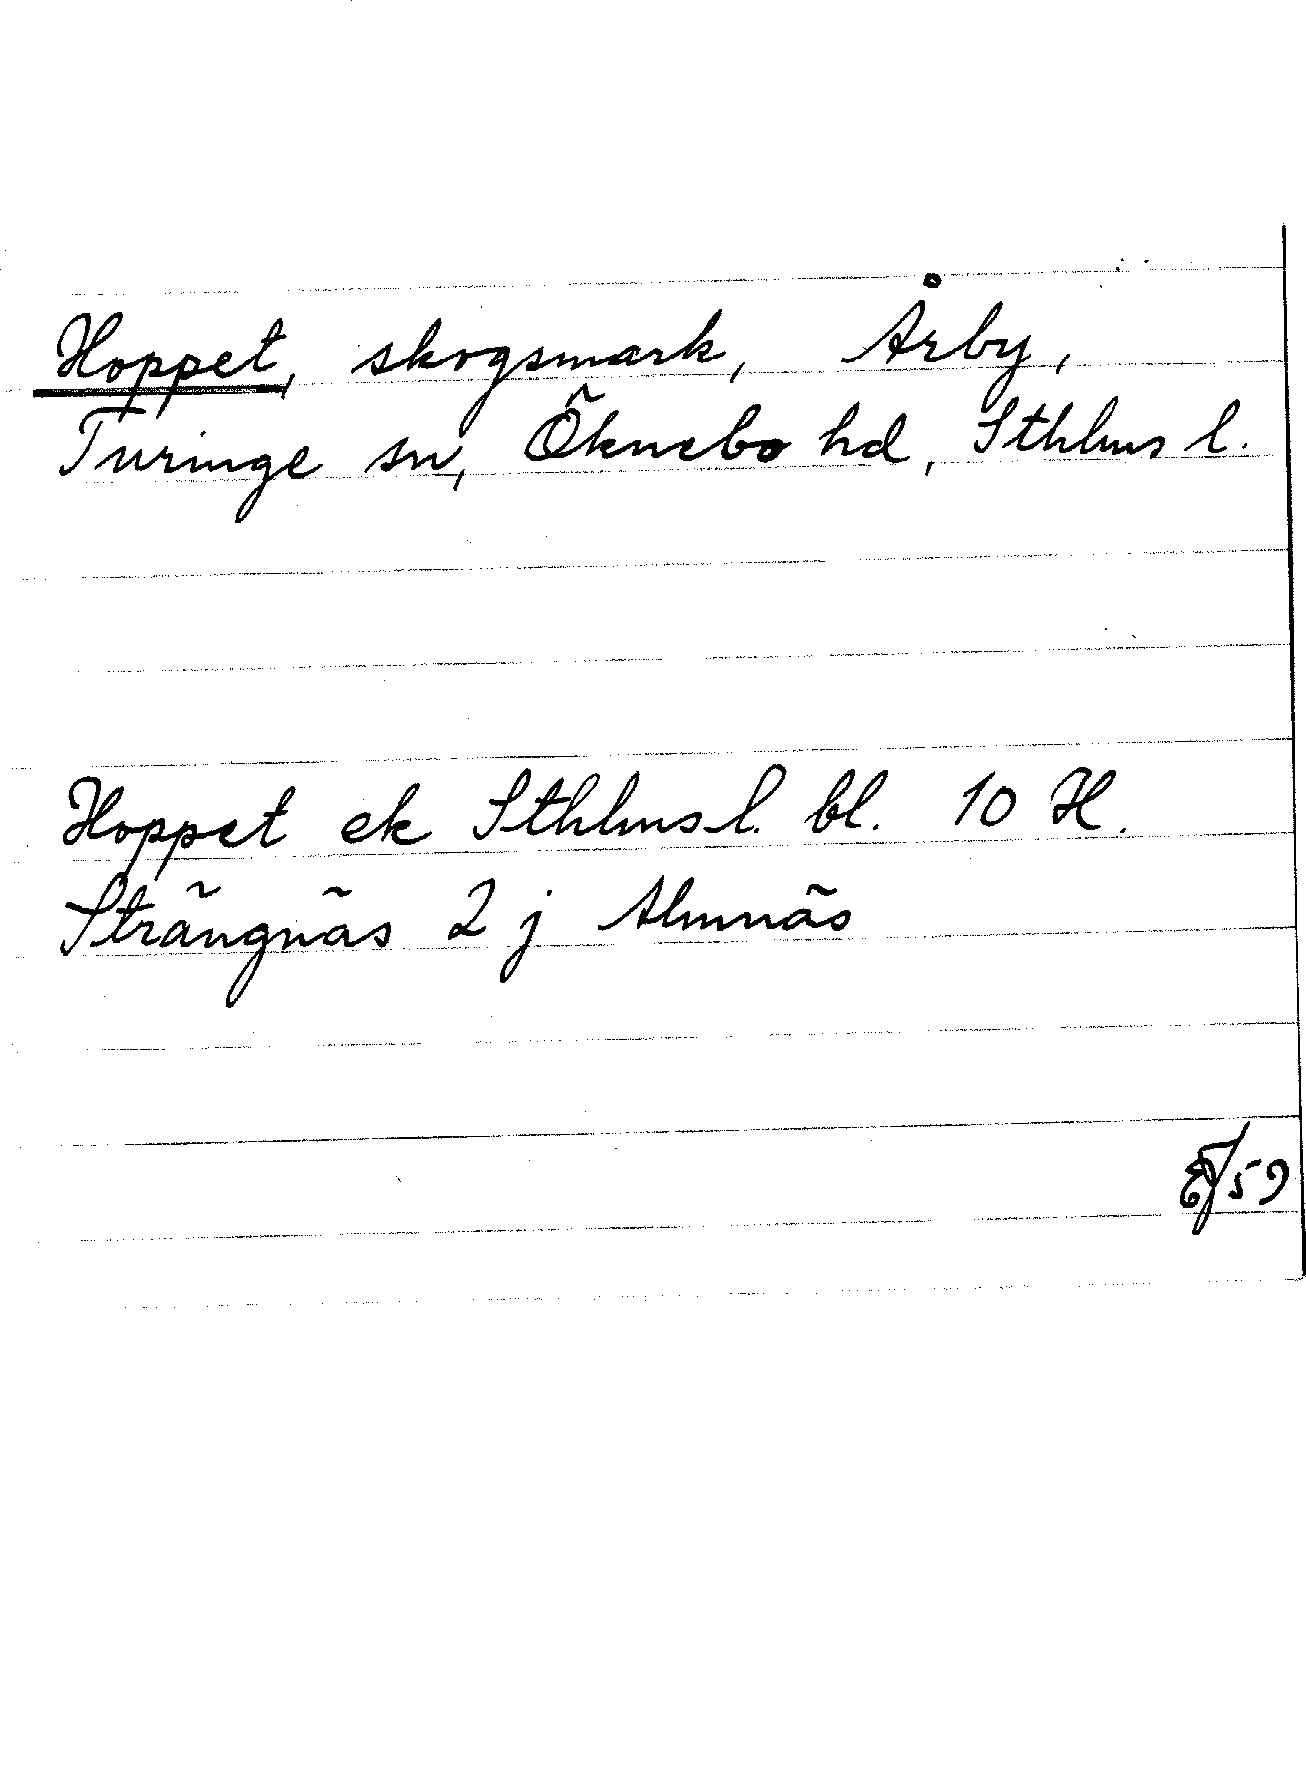 Hoppet, skogsmark, Årby,
Turinge sn, Öknebo hd, Sthlms l.
Hoppet ek Sthlms l. bl. 10 H.
Strängnäs 2 j Almnäs
/59